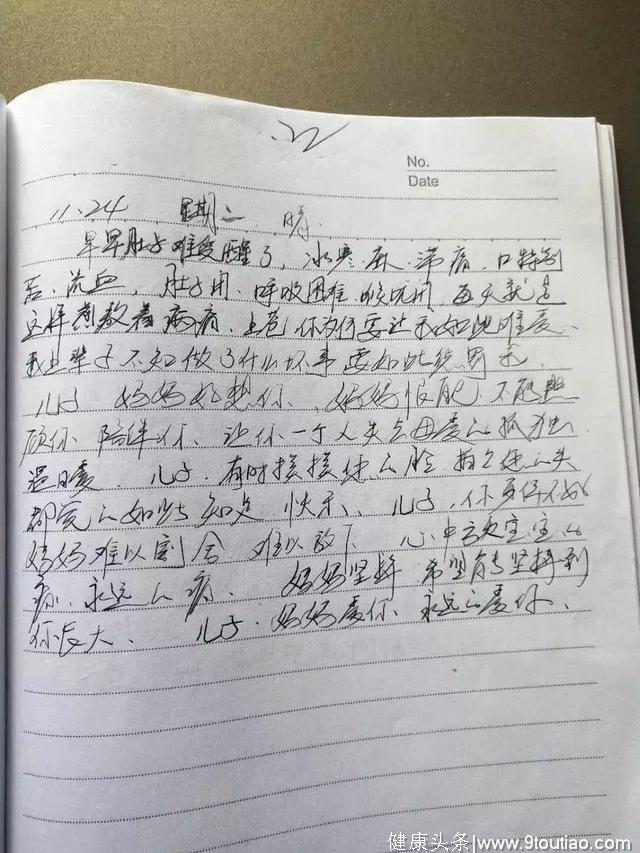 No.
Date
11.24 星期二 晴
早早肚子难受醒了，冰寒 麻 滞痛，口特别
苦、流血，肚子闷、呼吸困难 喉咙闷，每天就是
这样 数着病痛，上苍 你为何要让我如此难受、
我上辈子不知做了什么坏事要如此 我
儿子 妈妈好想你、妈妈 不能照
顾你 陪伴你、让你一个人失去母爱的孤独
过日. 儿子. 有时摸摸他的脸 他的头
都觉的如此知足 快乐、 儿子，你
妈妈难以割舍 难以放下 心中
痛、永远的痛. 妈妈坚持 希望能坚持到
你长大、 儿子. 妈妈爱你 永远的爱你、
健康头条|www.9toutiao.com